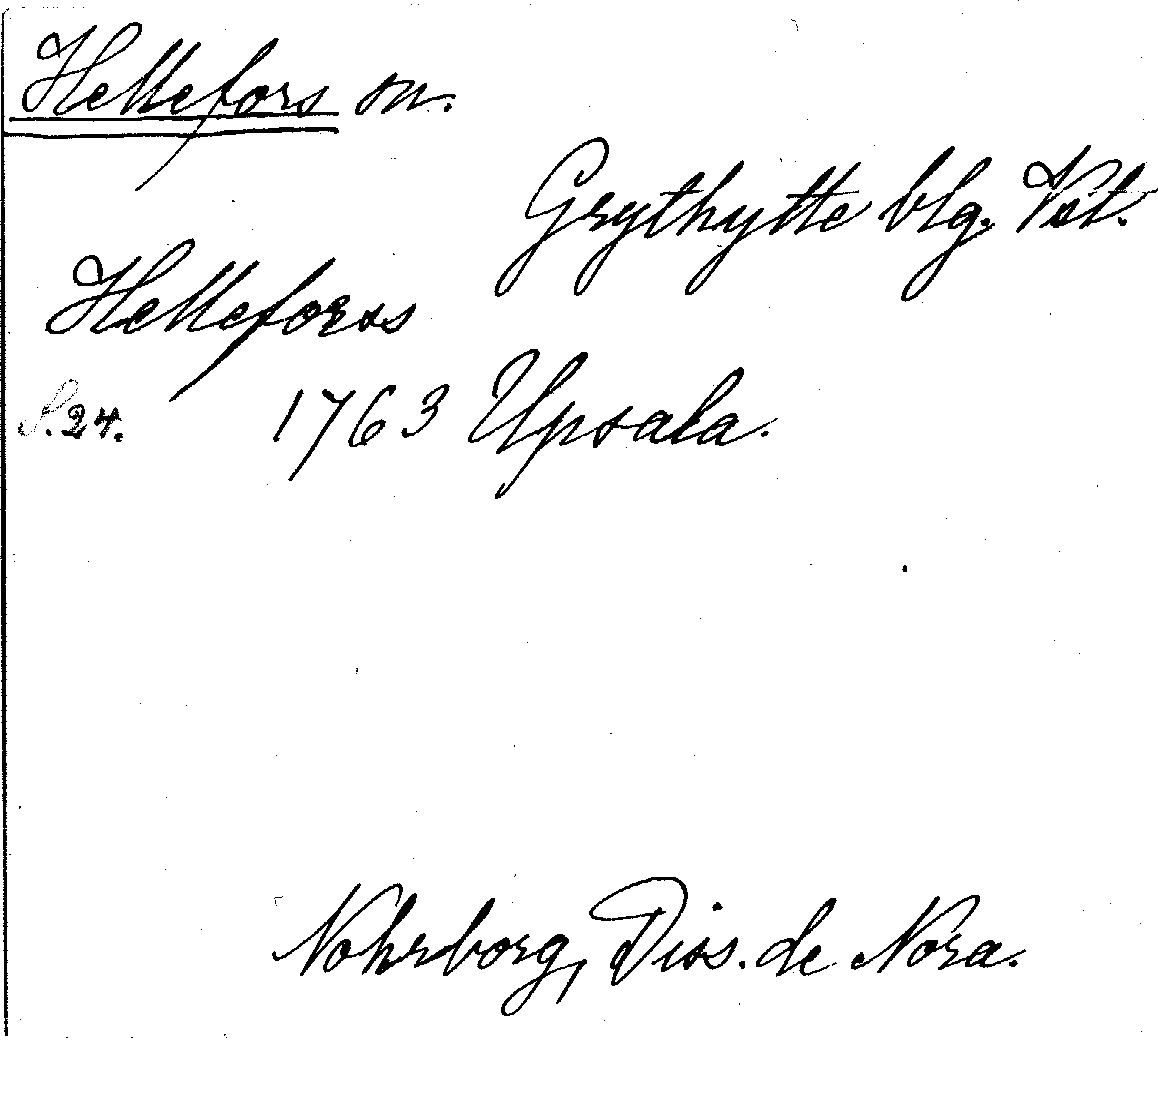 Hellefors sn.
Grythytte blg. Vstl.
Helleforss
S. 24. 1763 Upsala.
Nohrborg, Diss. de Nora.